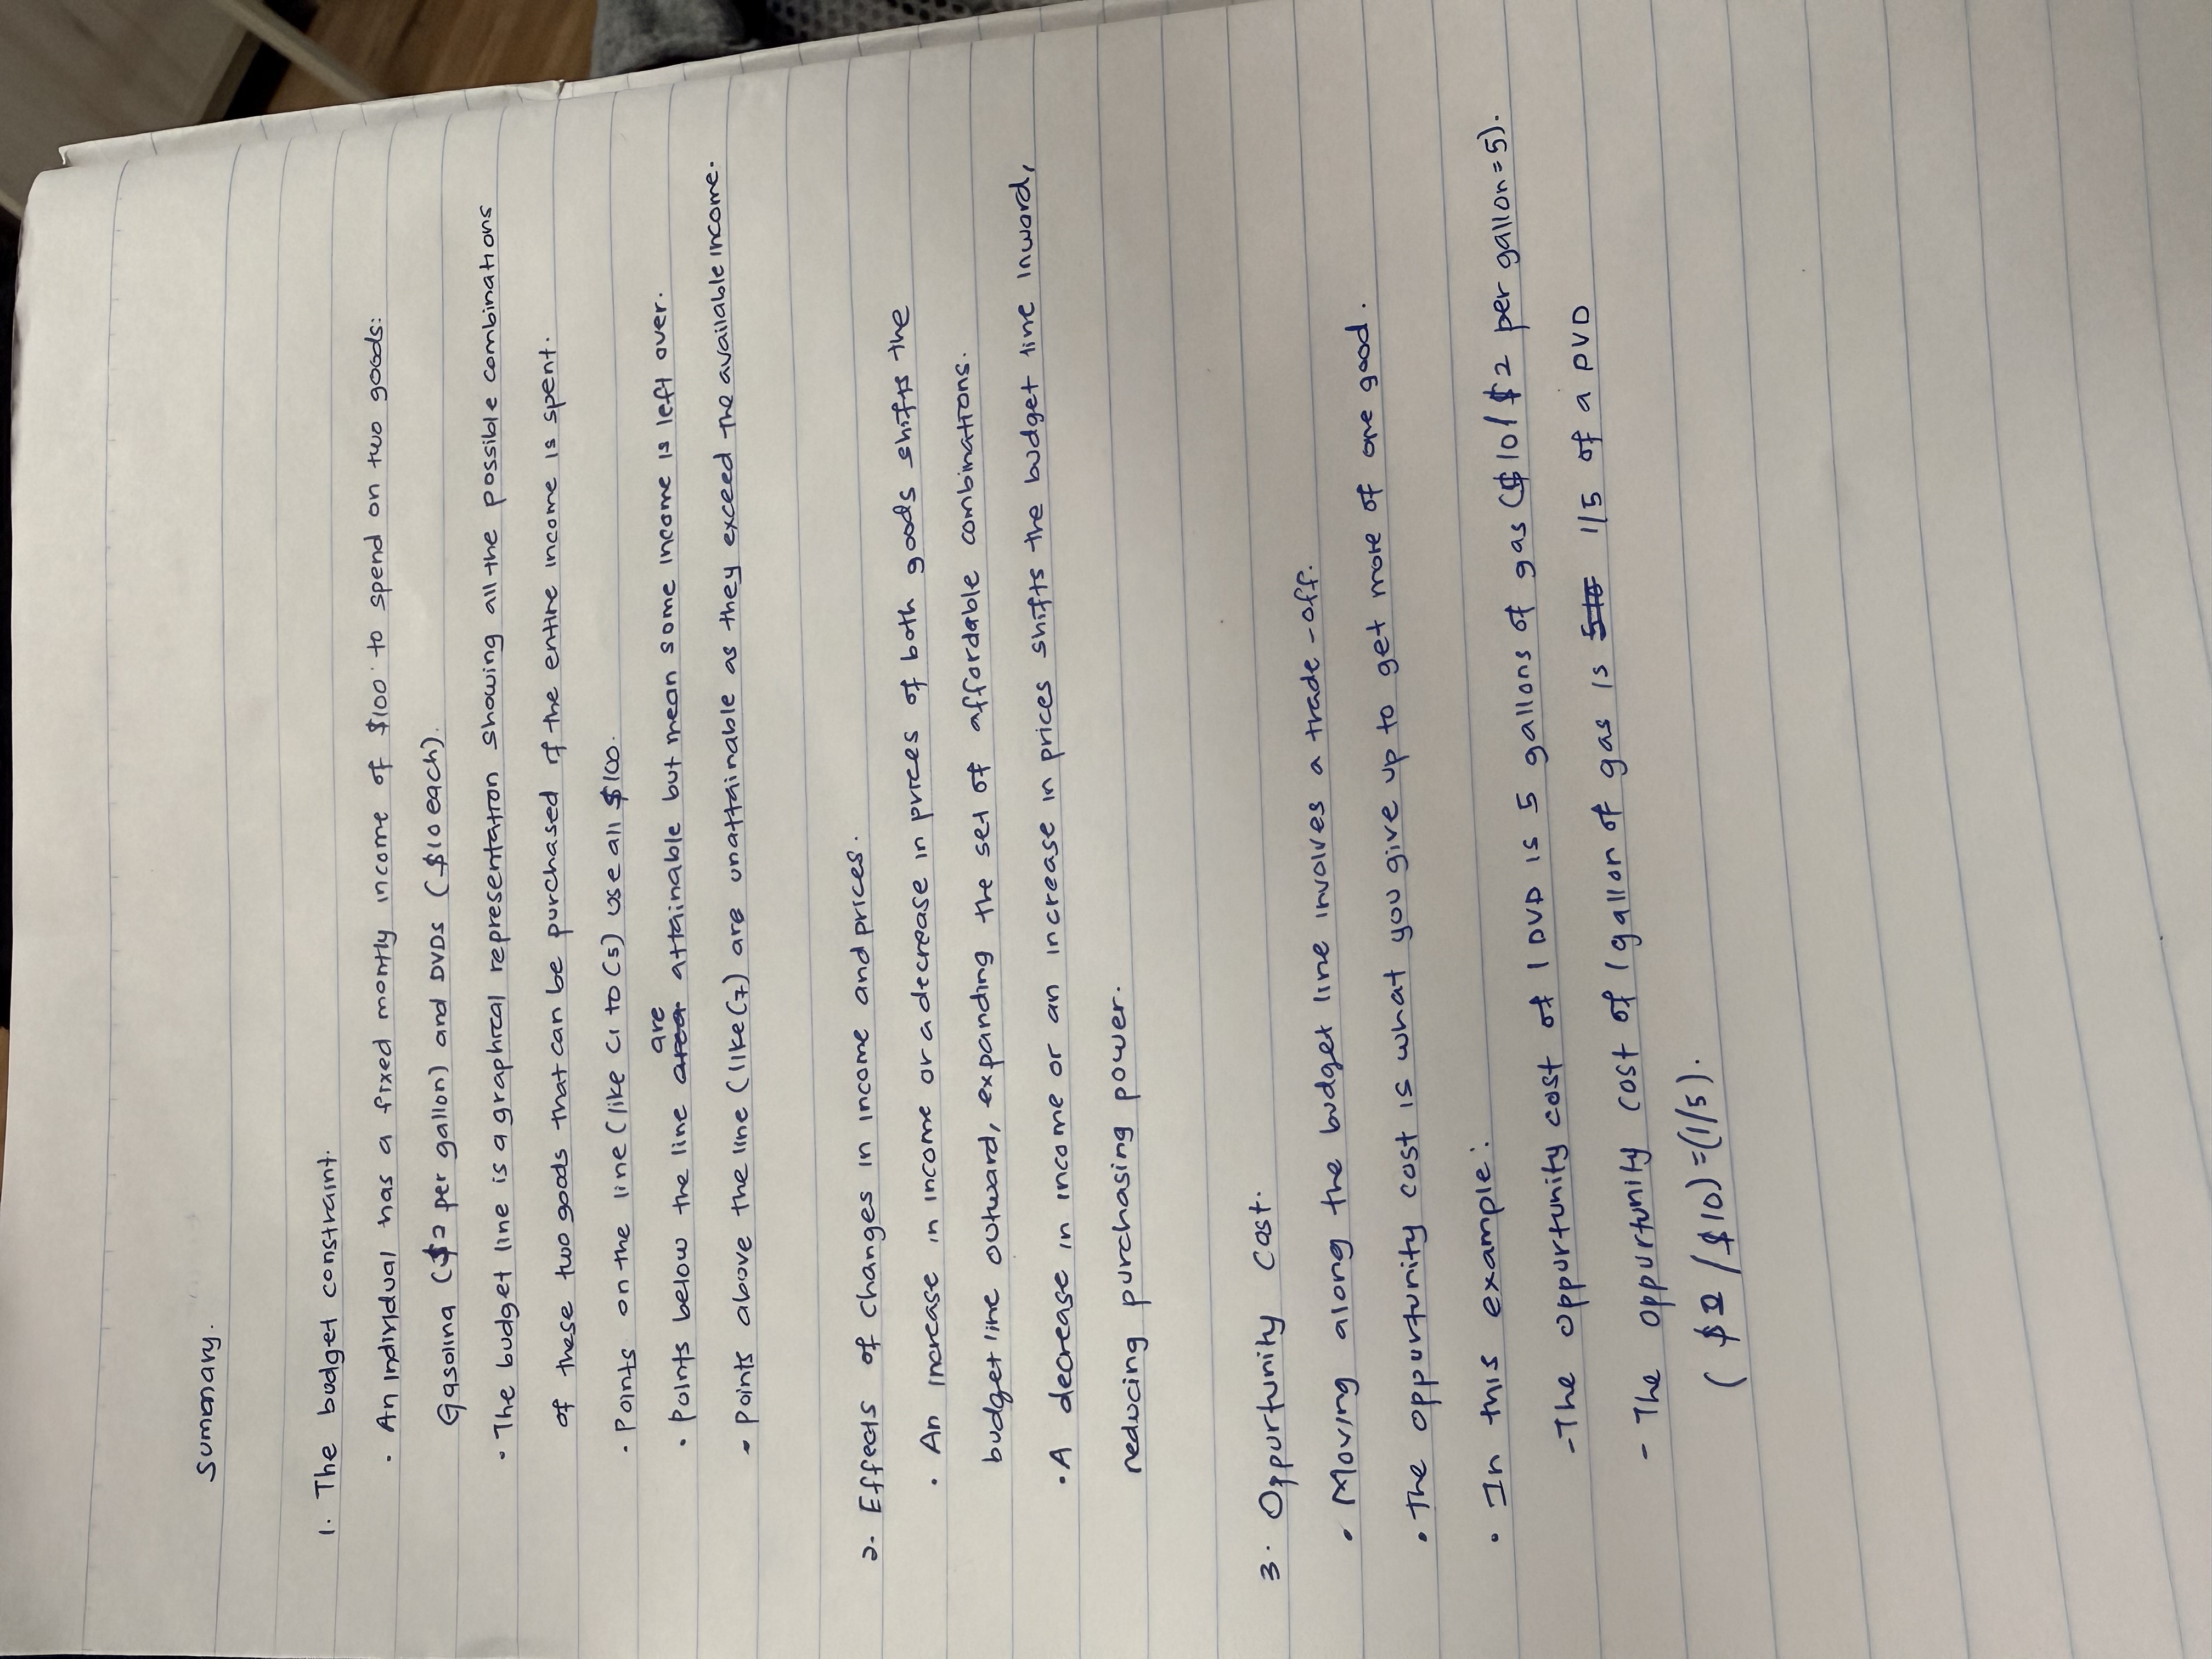 Summary.
1. The budget constraint.
• An individual has a fixed montly income of $100 to spend on two goods:
Gasolina ($2 per gallon) and DVDs ($10 each).
• The budget line is a graphical representation showing all the possible combinations
of these two goods that can be purchased if the entire income is spent.
• Points on the line (like C1 to C5) use all $100.
• Points below the line are attainable but mean some income is left over.
• Points above the line (like C7) are unattainable as they exceed the available income.
2. Effects of changes in income and prices.
• An increase in income or a decrease in prices of both goods shifts the
budget line outward, expanding the set of affordable combinations.
• A decrease in income or an increase in prices shifts the budget line inward,
reducing purchasing power.
3. Oppurtunity Cost.
• Moving along the budget line involves a trade-off.
• The oppurtunity cost is what you give up to get more of one good.
• In this example:
- The oppurtunity cost of 1 DVD is 5 gallons of gas ($10/$2 per gallon = 5).
- The oppurtunity cost of 1 gallon of gas is 1/5 of a DVD
($2/$10) = (1/5).